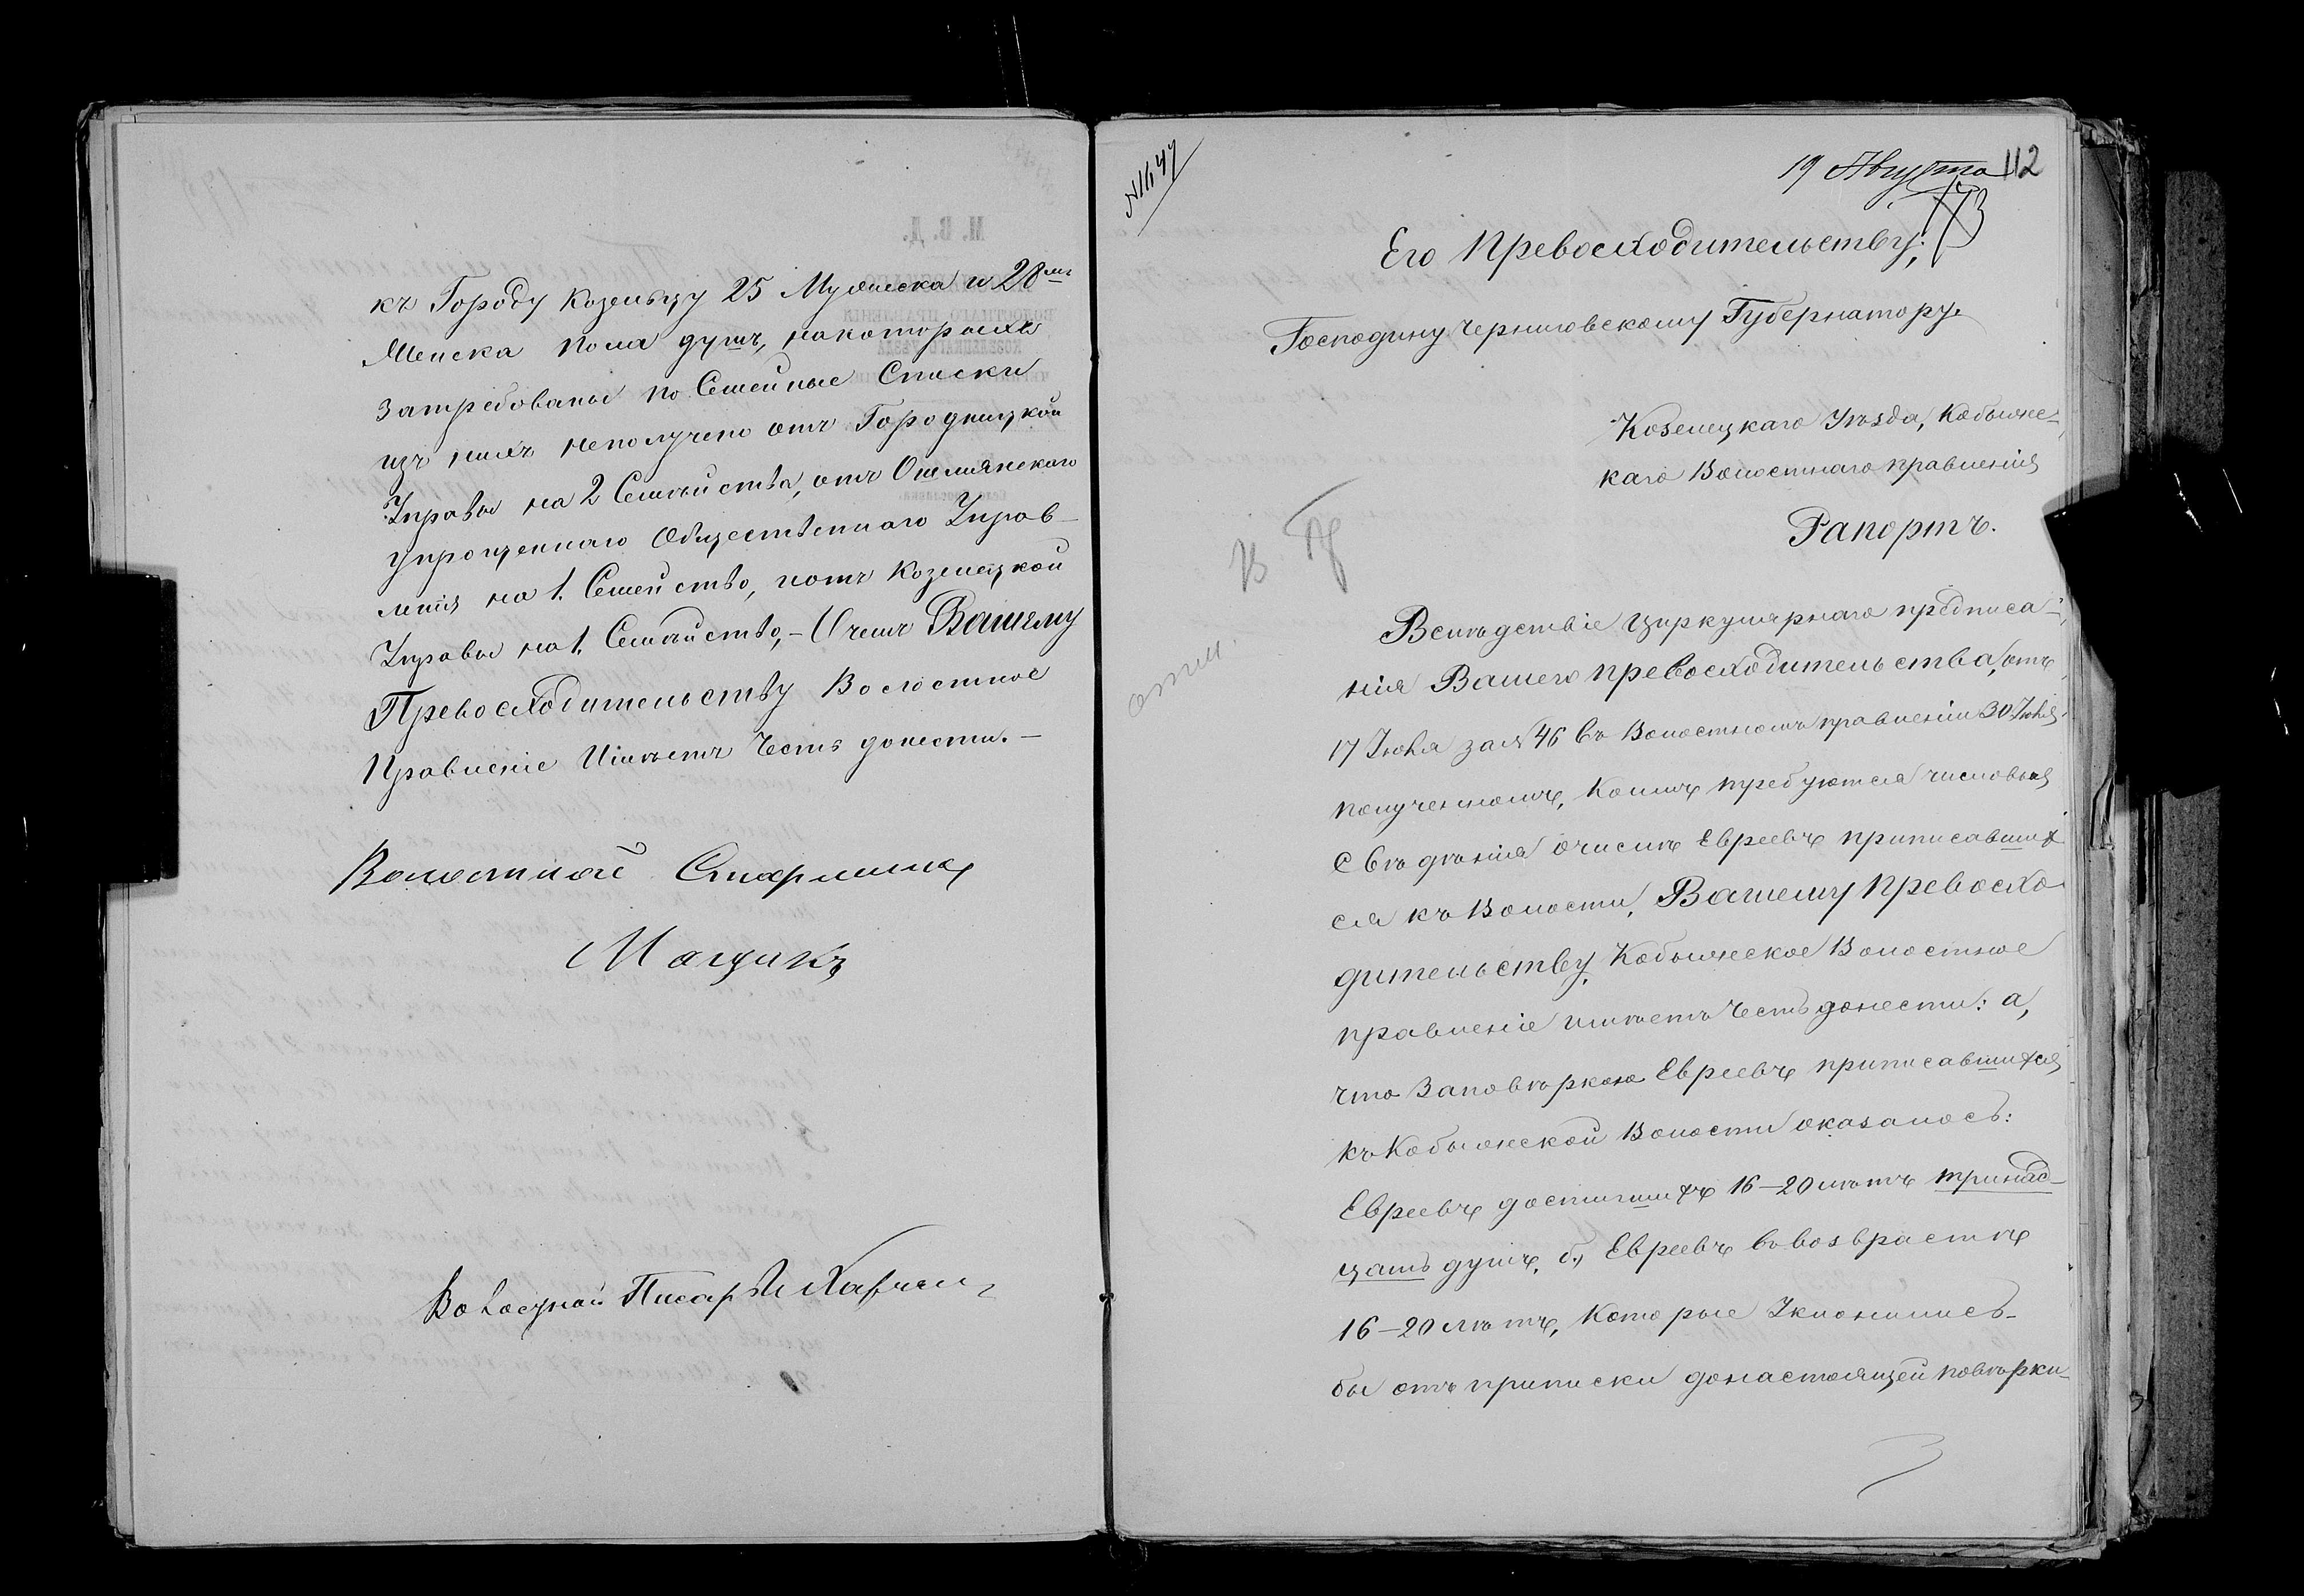 къ Городу Козельцу 25 Мужеска и 28мь
Женска пола душъ, накоторыхъ
затребованы по Семейные Списки
изъ нихъ неполучено отъ Городницкой
Управы на 2 Семейства, отъ Ошмянскаго
упрощеннаго Общественнаго Управ-
ленія на 1. Семейство, и отъ Козелецкой
Управы на 1. Семейство, - О чемъ Вашему
Превосходительству Волостное
Правленіе Имѣетъ Честь донести. -
Волостной Старшина
Мощикъ
Волостной Писарь
19 Августа 112
113
№1647
Его Превосходительству,
Господину Черниговскому Губернатору.
Козелецкаго Уѣзда, Кобыже-
каго Волостнаго правленія
Рапортъ.
Вслѣдствіе Циркулярнаго предписа-
нія Вашего превосходительства, отъ
17 Іюня за № 46 въ Волостномъ правленіи 30 Іюня
полученномъ, Коимъ требуются числовыя
Свѣдѣнія очислѣ Евреевъ приписавших
ся къ Волости, Вашему Превосхо
дительству, Кобыжеское Волостное
правленіе имѣетъ Честь донести: а,
что Заповѣркою Евреевъ приписавшихся
къ Кобыжской Волости оказалось:
Евреевъ достигшихъ 16-20 лѣтъ тринад-
цать душъ, б, Евреевъ въ возврастѣ
16-20 лѣтъ, Которые Уклонились-
бы отъ приписки донастоящей повѣрки